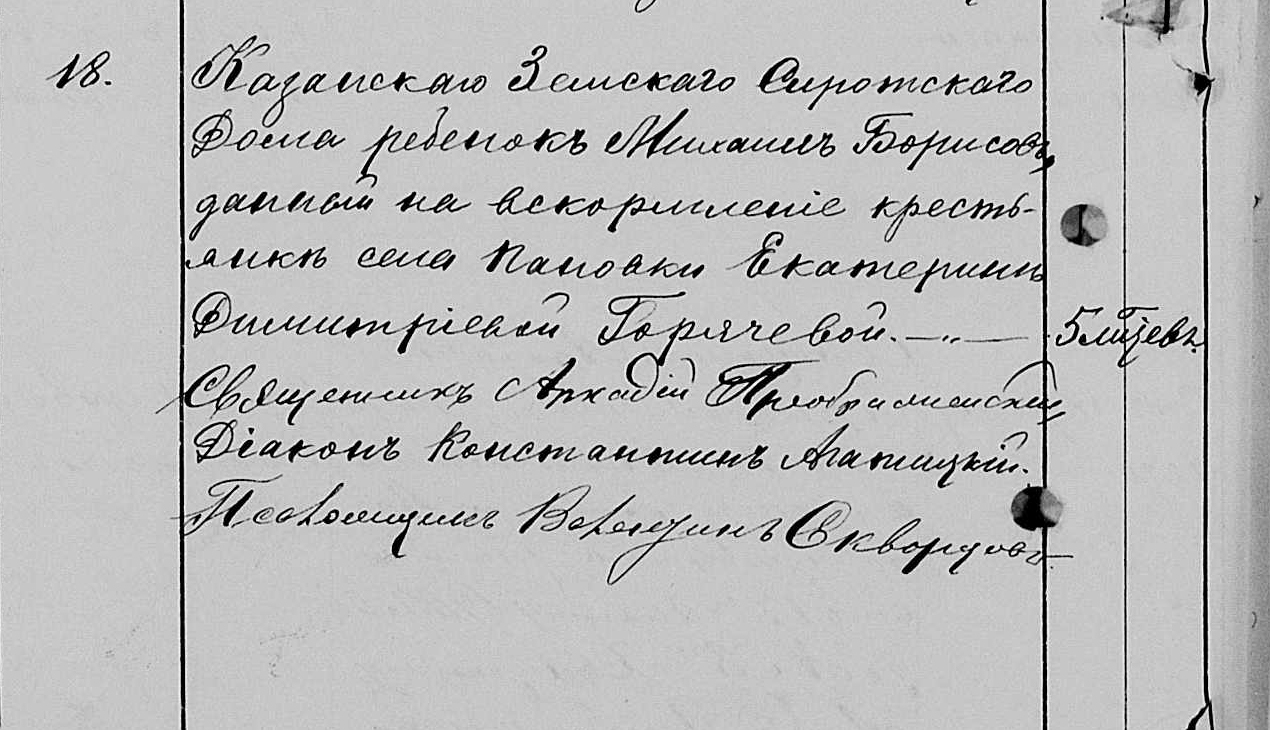 18. Казанскаго Земскаго Сиротскаго
Дома ребенокъ Михаилъ Борисовъ,
данный на вскормленіе кресть-
янкѣ села Пановки Екатеринѣ
Димитріевой Горячевой. —„— 5 мѣсяцевъ.
Священникъ Аркадій Преображенскій,
Діаконъ Константинъ Агатицкій.
Псаломщикъ Скворцовъ